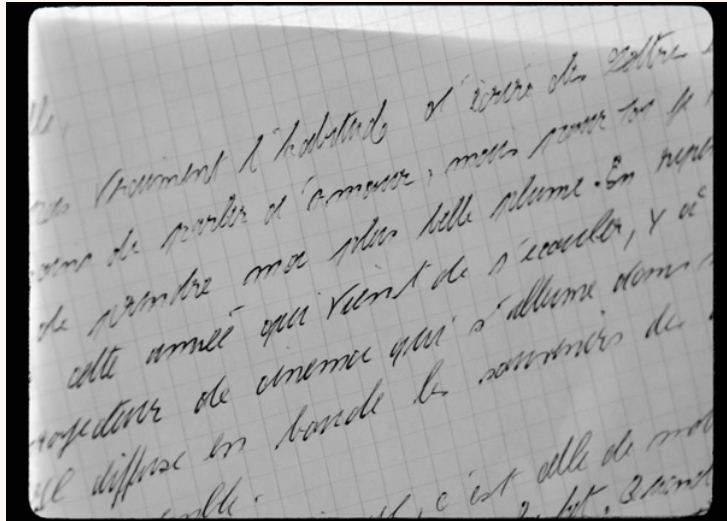 lle,
vraiment l'habitude d'écrire des lettres
moins de parler d'amour, mais pour toi je
de prendre ma plus belle plume. En repen
cette année qui vient de s'écouler, y a
projecteur de cinema qui s'allume dans
il diffuse en boucle les souvenirs de
emble.
c'est celle de not
Quand